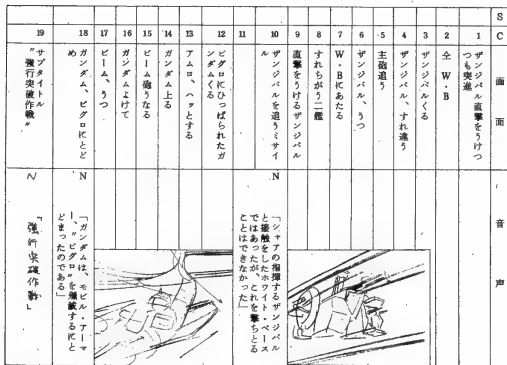 S
C
画面
音声
1
ザンジバル直撃をうけつ
つも突進
2
仝 W・B
3
ザンジバルくる
4
ザンジバル、すれ違う
5
主砲追う
6
ザンジバル、うつ
7
W・Bにあたる
8
すれちがう二艦
9
直撃をうけるザンジバル
10
ザンジバルを追うミサイ
ル
N
「シャアの指揮するザンジバル
と接触をしたホワイト・ベース
ではあったが、これを撃ちとる
ことはできなかった」
11
12
ビグロにひっぱられたガ
ンダムくる
13
アムロ、ハッとする
14
ガンダム上る
15
ビーム砲うなる
16
ガンダムよけて
17
ビーム、うつ
18
ガンダム、ビグロにとど
め
N
「ガンダムは、モビル・アーマ
ー、"ビグロ"を撃滅するにと
どまったのである」
19
サブタイトル
"強行突破作戦"
N
「強行突破作戦」